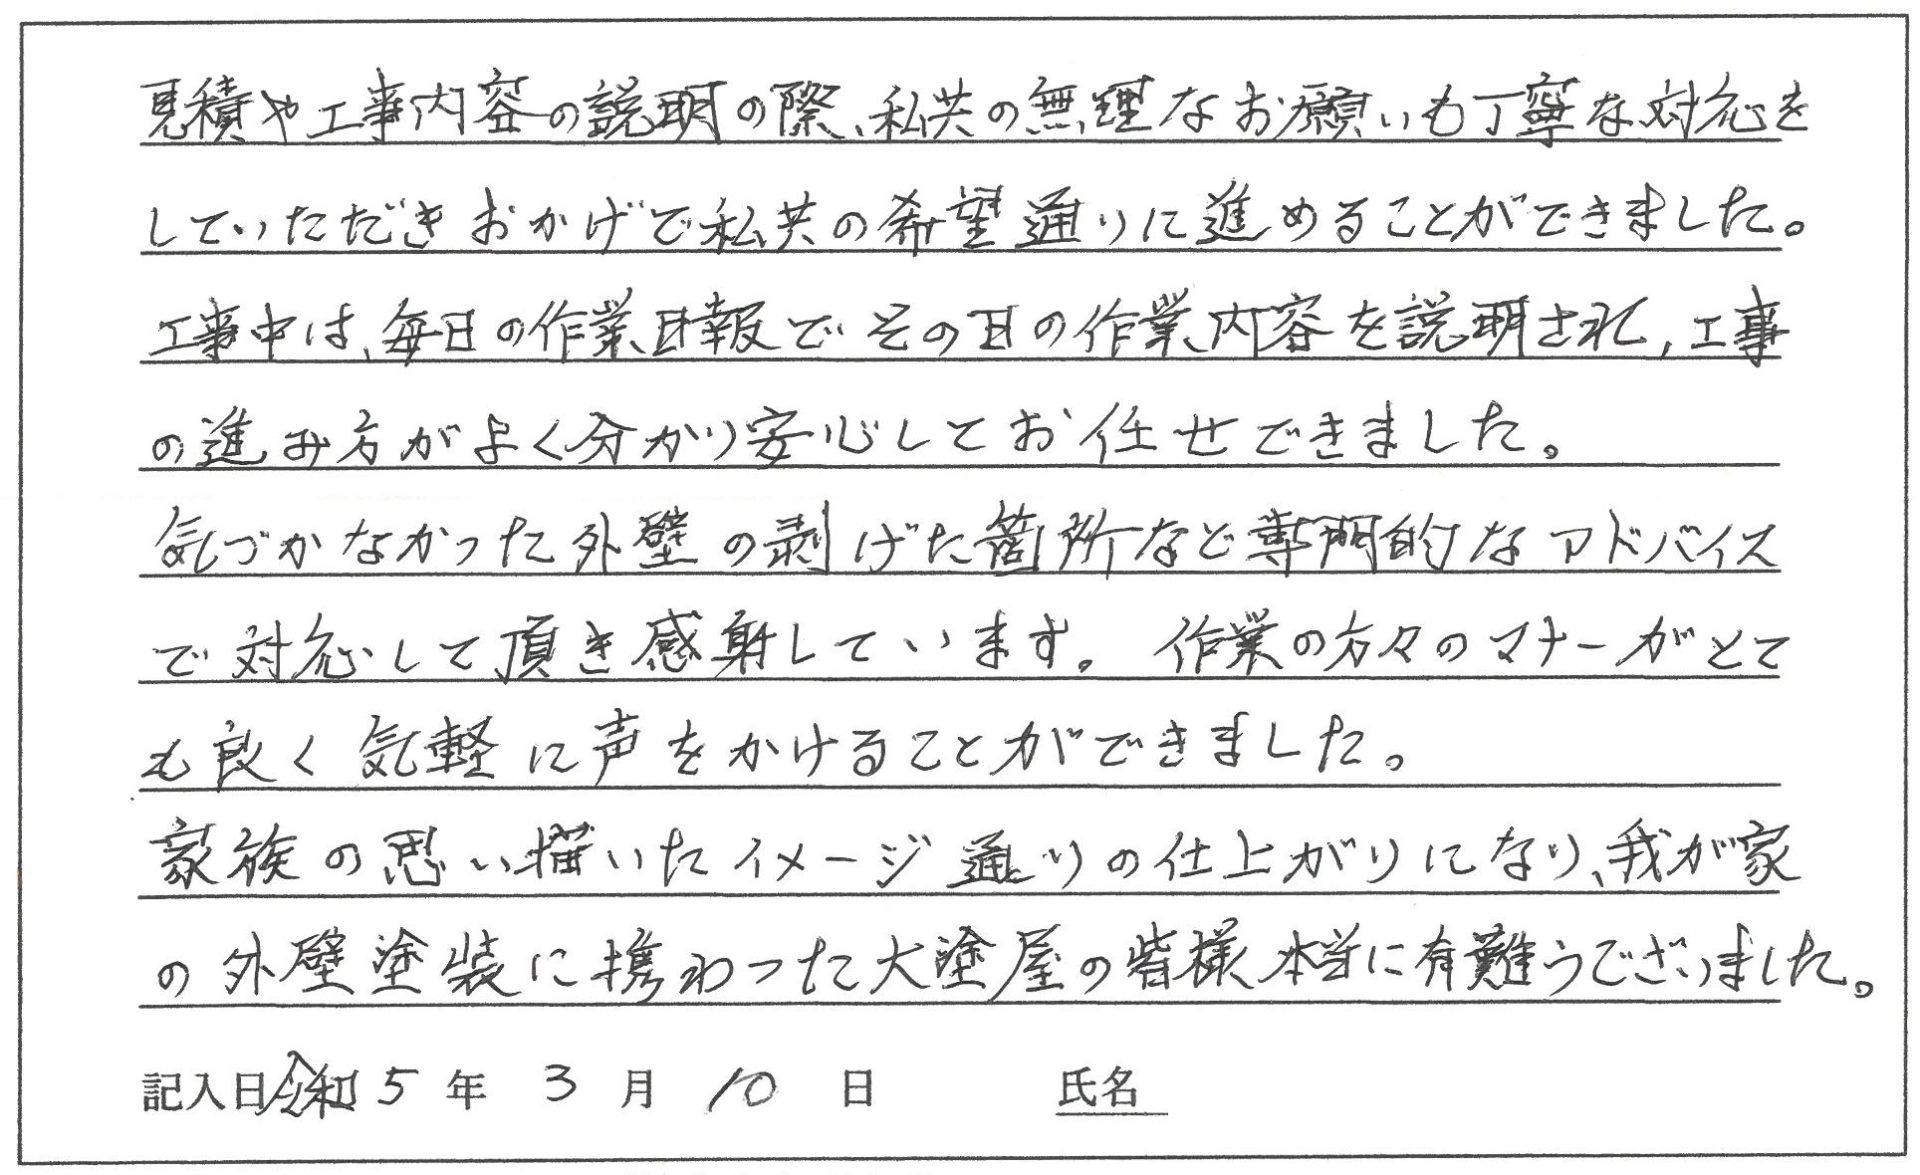 見積や工事内容の説明の際、私共の無理なお願いも丁寧な対応を
していただきおかげで私共の希望通りに進めることができました。
工事中は、毎日の作業日報でその日の作業内容を説明され、工事
の進み方がよく分かり安心してお任せできました。
気づかなかった外壁の剥げた箇所など専門的なアドバイス
で対応して頂き感謝しています。作業の方々のマナーがとて
も良く気軽に声をかけることができました。
家族の思い描いたイメージ通りの仕上がりになり、我が家
の外壁塗装に携わった大塗屋の皆様本当に有難うございました。
記入日 令和 5 年 3 月 10 日 氏名